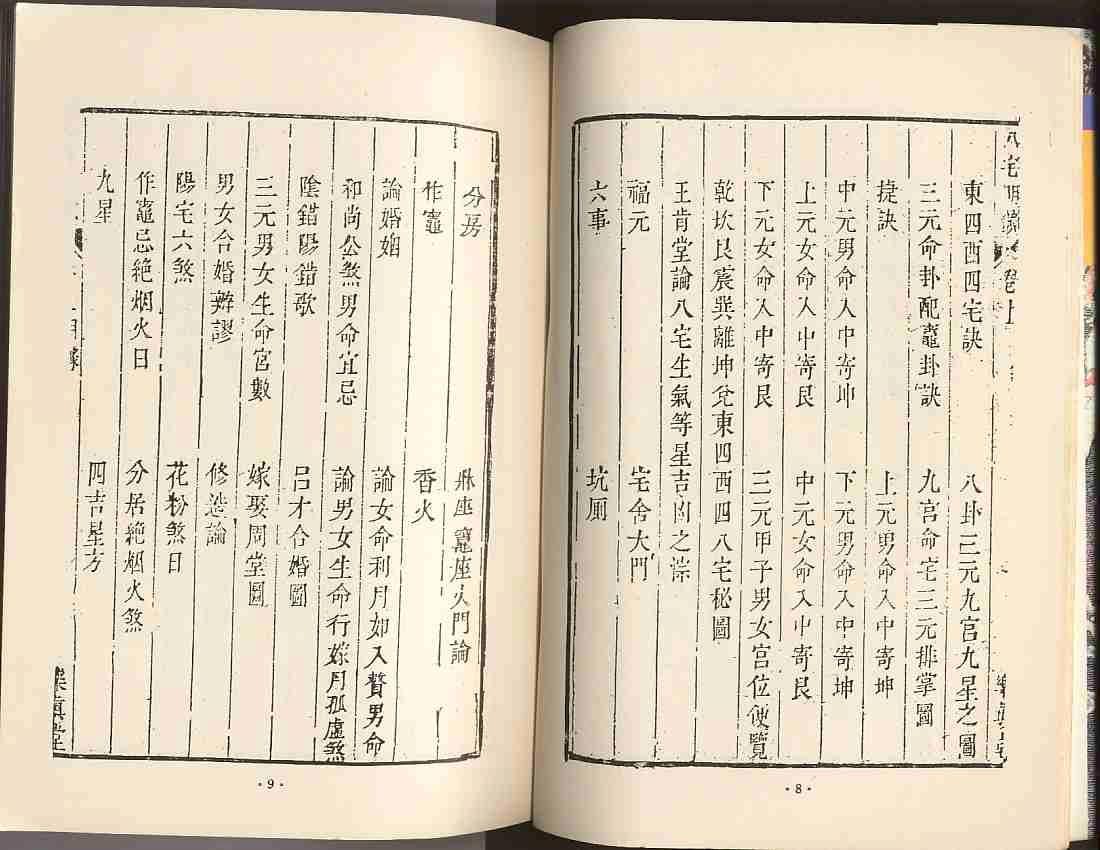 八宅明鏡 卷上
東四西四宅訣 八卦三元九宮九星之圖
三元命卦配竈卦訣 九宮命宅三元排掌圖
捷訣 上元男命入中寄坤
中元男命入中寄坤 下元男命入中寄坤
上元女命入中寄艮 中元女命入中寄艮
下元女命入中寄艮 三元甲子男女宮位便覽
乾坎艮震巽離坤兌東四西四八宅秘圖
王肯堂論八宅生氣等星吉凶之淙
福元 宅舍大門
六事 坑厠
樂真堂
·8·
分房 牀座竈座火門論
作竈 香火
論婚姻 論女命利月如入贅男命
和尚公煞男命宜忌 論男女生命行嫁月孤虛煞
陰錯陽錯歌 呂才合婚圖
三元男女生命宮數 嫁娶周堂圖
男女合婚辨謬 修造論
陽宅六煞 花粉煞日
作竈忌絶烟火日 分居絶烟火煞
九星 四吉星方
樂真堂
·9·